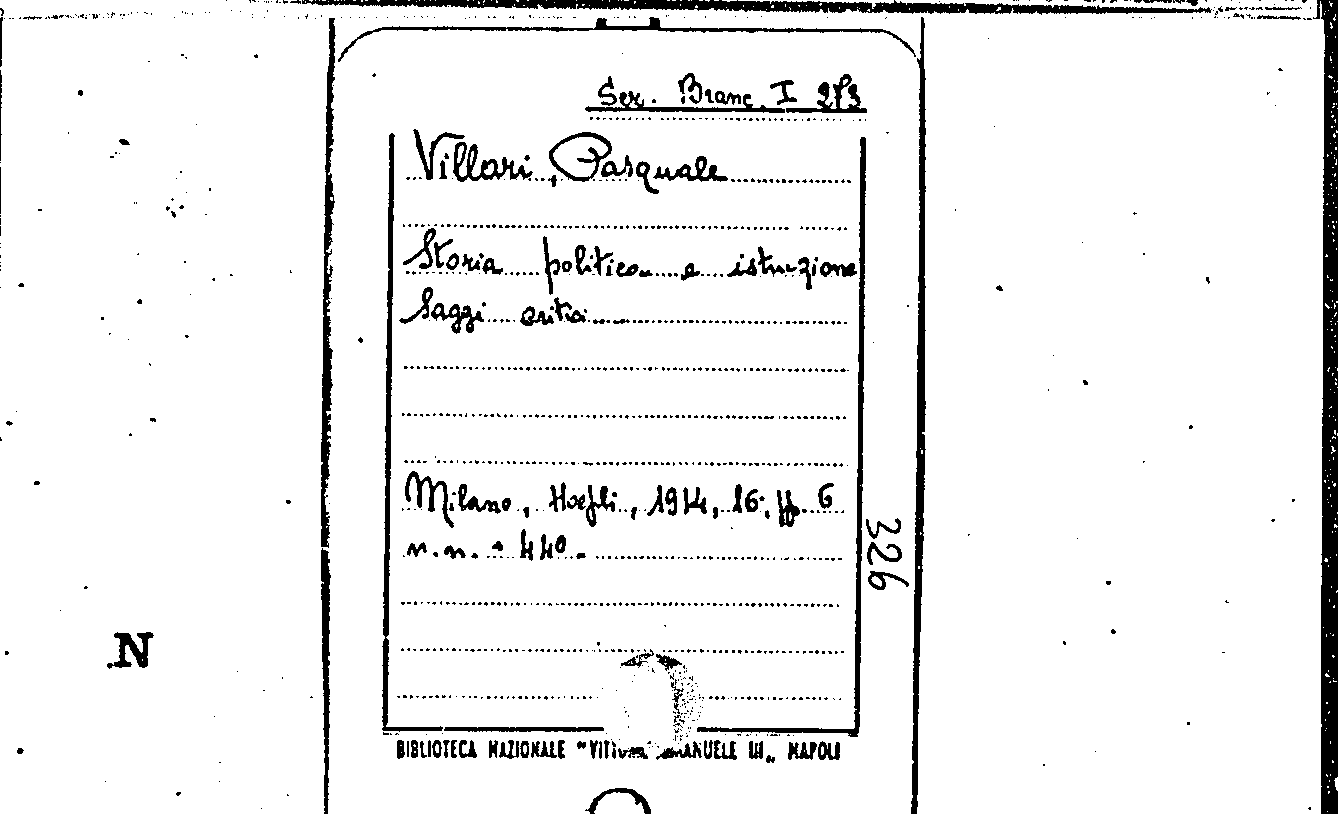 Ser. Branc. I 273
Villari, Pasquale
Storia politica e istruzione
Saggi critici
Milano, Hoepli, 1914, 16°, pp. 6
n.n. + 440.
326
N
BIBLIOTECA NAZIONALE "VITTORIO EMANUELE III„ NAPOLI